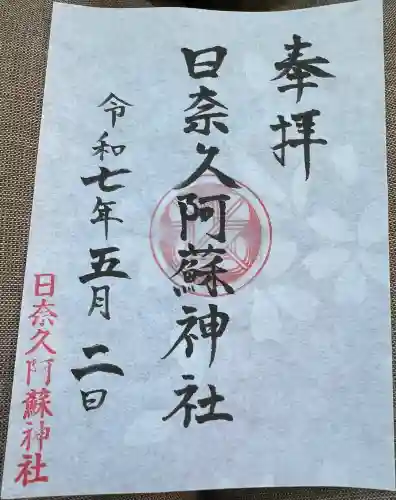 奉拝
日奈久阿蘇神社
令和七年五月二日
日奈久阿蘇神社